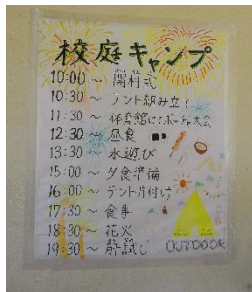 校庭キャンプ
10:00 〜 開村式
10:30 〜 テント組み立て
11:30 〜 体育館にてボッチャ大会
12:30 〜 昼食
13:30 〜 水遊び
15:00 〜 夕食準備
16:00 〜 テント片付け
17:30 〜 食事
18:30 〜 花火
19:30 〜 肝試し
OUTDOOR